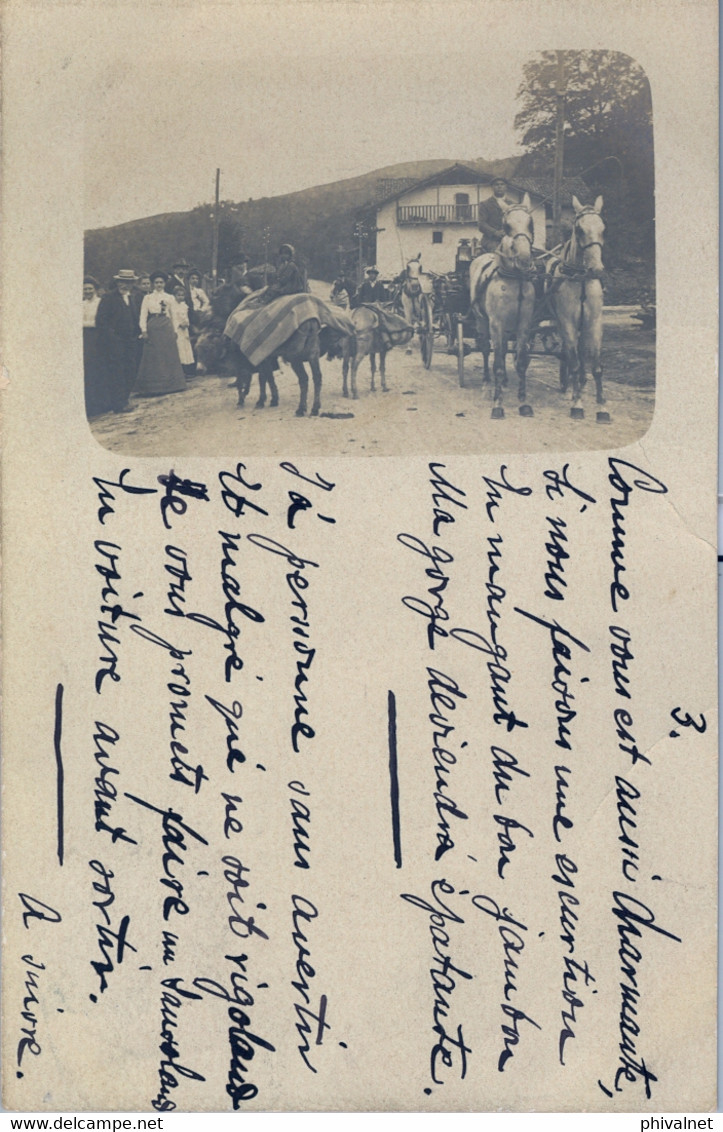 3.
Comme vous est aussi charmante,
Si nous faisons une escurtion
En mangant du bon jambon
Ma gorge deviendrá épatante.
J'á personne sans avertir
Et malgré qué ne soit rigoland
Je vous promets faire un
En voiture avant sortir.
A suivre.
phivalnet